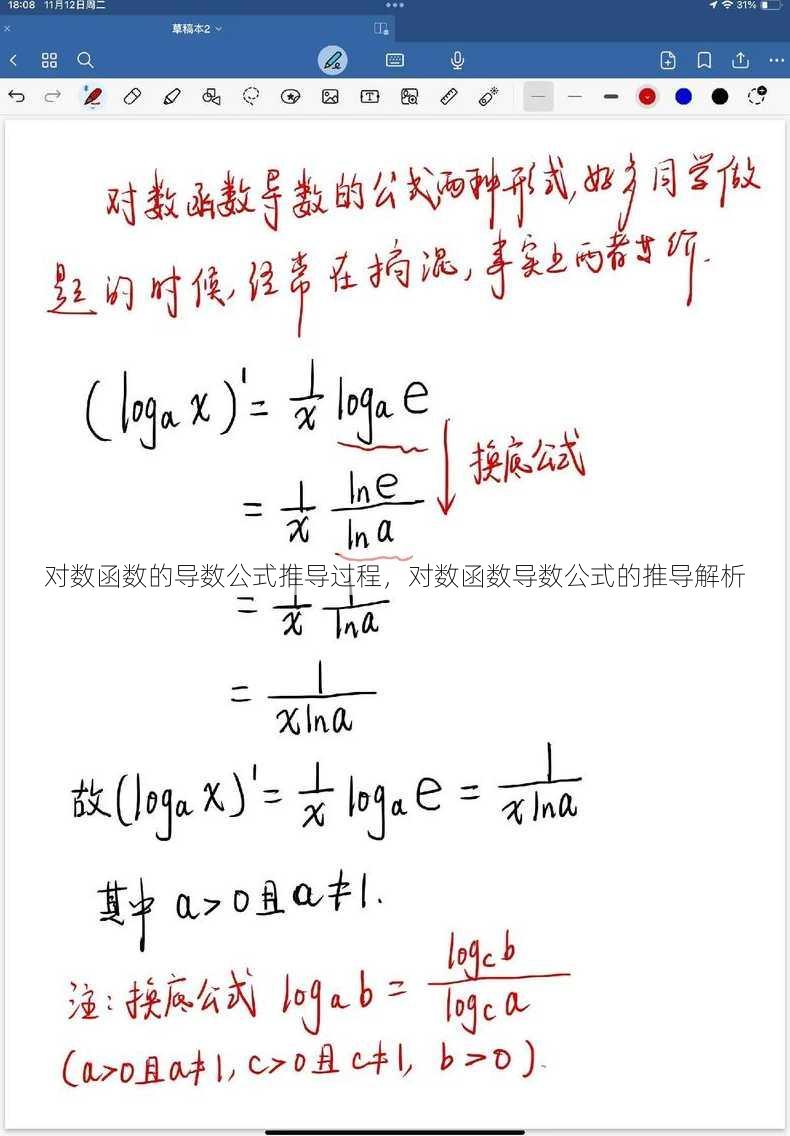 18:08 11月12日周二
31%
草稿本2
对数函数导数的公式两种形式,好多同学做
题的时候,经常在搞混,事实上两者等价.
(logₐx)'= 1/x logₐe
换底公式
= 1/x lne/lna
对数函数的导数公式推导过程，对数函数导数公式的推导解析
= 1/x 1/lna
= 1/xlna
故(logₐx)'= 1/x logₐe = 1/xlna
其中 a>0且a≠1.
注:换底公式 logₐb = log꜀b/log꜀a
(a>0且a≠1, c>0且c≠1, b>0).